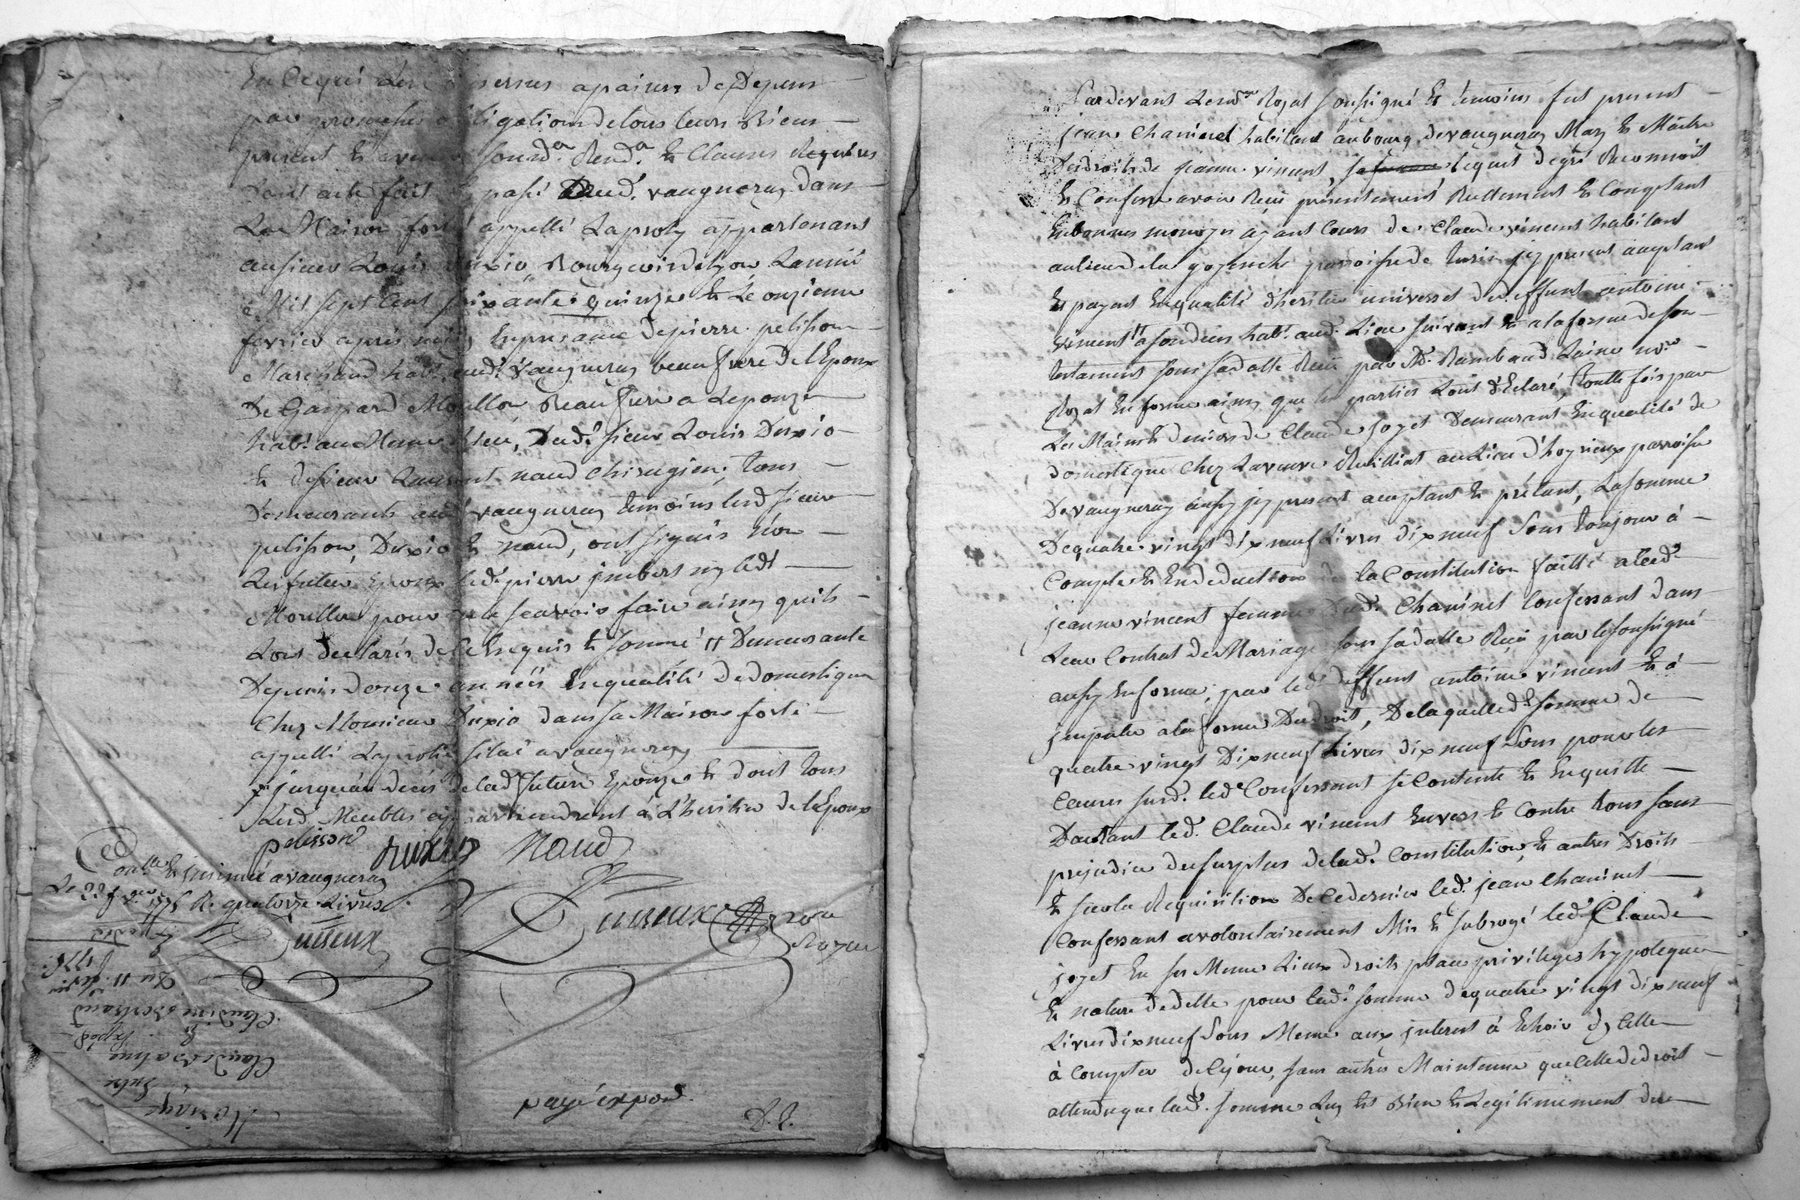 En Ceque Les personnes a paines de Depens
par promesses obligations de tous leurs Biens
present & avenir soumd.on Rend.on & Clauses Requises
Dont acte fait & passé Aud.t vaugneray dans
La Maison forte appellé Laproty appartenant
au sieur Louis Duxio Bourgeois de lyon Lannée
Mil sept Cent soixante quinze & Le onzieme
fevrier après midy En presance de pierre pelisson
Marchand hab.t aud.t Vaugneray beau frere de l'Epoux
De Gaspard Moullon Beau frere a Lepouze
hab.t au Meme lieu, Dud.t sieur Louis Duxio
& de sieur Laurent naud Chirugien, tous
Demeurants aud.t vaugneray temoins lesd sieur
pelisson, Duxio & naud, ont signés non
Les futur Epoux led.t pierre jmbert ny led.t
Moullon pour ne le scavoir faire ainsy quils
Lont declarés de ce Enquis & sommé # Demeurante
Depuis douze années En qualité de domestique
Chez Monsieur Duxio dans sa Maison forte
appellé Laprotie situé a vaugneray
# jusquau deces de lad.e future Epouze & dont tous
Lesd. Meubles appartiendront à L'heritier de lEpoux
pelisson duxio Naud
Con.lé & jnsinué a vaugneray
Le 22 f.er 1775 R. quatorze Livres
Dutreux
Dutreux
Royer
payé expéd.
D. J.
Mariage
Entre
Claude
&
Claudine Bertrand
Du 11 fevrier
1775
Pardevant Le no.re Royal soussigné & temoins fut present
jean Chaninel habitant au bourg de vaugneray Mary & Maitre
Des droits de jeanne vincent, lequel de gré Reconnoit
& Confesse avoir Reçu presentement Reellement & Comptant
En bonnes monoyes ayant Cours de Claude vincent habitant
au lieu de la parroisse de jcy present acceptant
& payant En qualité d'heritier universel de deffunt antoine
vincent hab.t aud.t Lieu suivant & a la forme de son
testament sous sa datte Reçu par M.e Rambaud Laine no.re
Royal En forme ainsy que les parties Lont declaré, toutte fois par
Les Mains & deniers de Claude joyet Demeurant En qualité de
domestique Chez La veuve Ruilliat au Lieu d'hoyrieux parroisse
De vaugneray aussy jcy present acceptant & prétant, La somme
De quatre vingt dix neuf Livres dix neuf Sous toujour à
Compte & En deduction de la Constitution faitte a lad.e
jeanne vincent femme dud.t Chaninel Confessant dans
Leur Contrat de Mariage sous sa datte Reçu par le soussigné
aussy En forme, par led.t deffunt antoine vincent & à
jmputer a la forme Du droit, De laquelle d.e somme de
quatre vingt Dix neuf Livres dix neuf Sous pour les
Causes susd. led.t Confessant se Contente & En quitte
D'autant led.t Claude vincent Envers & Contre tous sans
prejudice du surplus de lad.e Constitution, & autres Droits
& sur la Requisition De Ce dernier led.t jean Chaninel
Confessant a volontairement Mis & subrogé led.t Claude
joyet En ses Meme Lieux droits place privileges hypoteques
& nature de dette pour lad.e somme de quatre vingt dix neuf
Livres dix neuf Sous Meme aux jnterest à Echoir d'jcelle
à Compter de Ce jour, sans autre Maintenue que Celle de droit
attendu que lad.e somme Luy Est Bien & Legitimement due